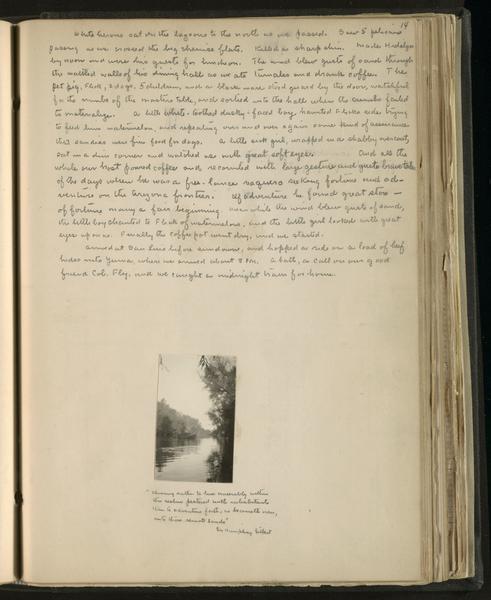 14
White herons sat on the lagoons to the north as we passed. Saw 5 pelicans
passing as we crossed the big chamise flats. Killed a sharp shin. Made Hidalgos
by noon and were his guests for luncheon. The wind blew gusts of sand through
the wattled walls of his dining hall as we ate tamales and drank coffee. The
pet pig, Flack, 2 dogs, 5 children, and a black mare stood guard by the door, watchful
for the crumbs of the master's table, and edged into the hall when the crumbs failed
to materialize. A little white-toothed dusky-faced boy haunted Flack's side, trying
to feed him watermelon, and repeating over and over again some kind of assurance
that sandias were fine food for dogs. A little sick girl, wrapped in a shabby overcoat,
sat in a dim corner and watched us with great soft eyes. And all the
while our host poured coffee and recounted with large gesture and gusto brave tales
of the days when he was a free-lance vaquero seeking fortune and ad-
venture on the Arizona frontier. Of adventure he found great store —
of fortune many a fair beginning. And while the wind blew gusts of sand,
the little boy chanted to Flack of watermelons, and the little girl looked with great
eyes upon us. Finally the coffee pot went dry, and we started.
Arrived at San Luis before sundown, and hopped a ride on a load of beef
hides into Yuma, where we arrived about 8 PM. A bath, a call on our good
friend Col. Fly, and we caught a midnight train for home.
"choosing rather to live miserably within
this realm pestered with inhabitants
than to adventure forth, as becometh men,
into those remote lands"
Sir Humphrey Gilbert